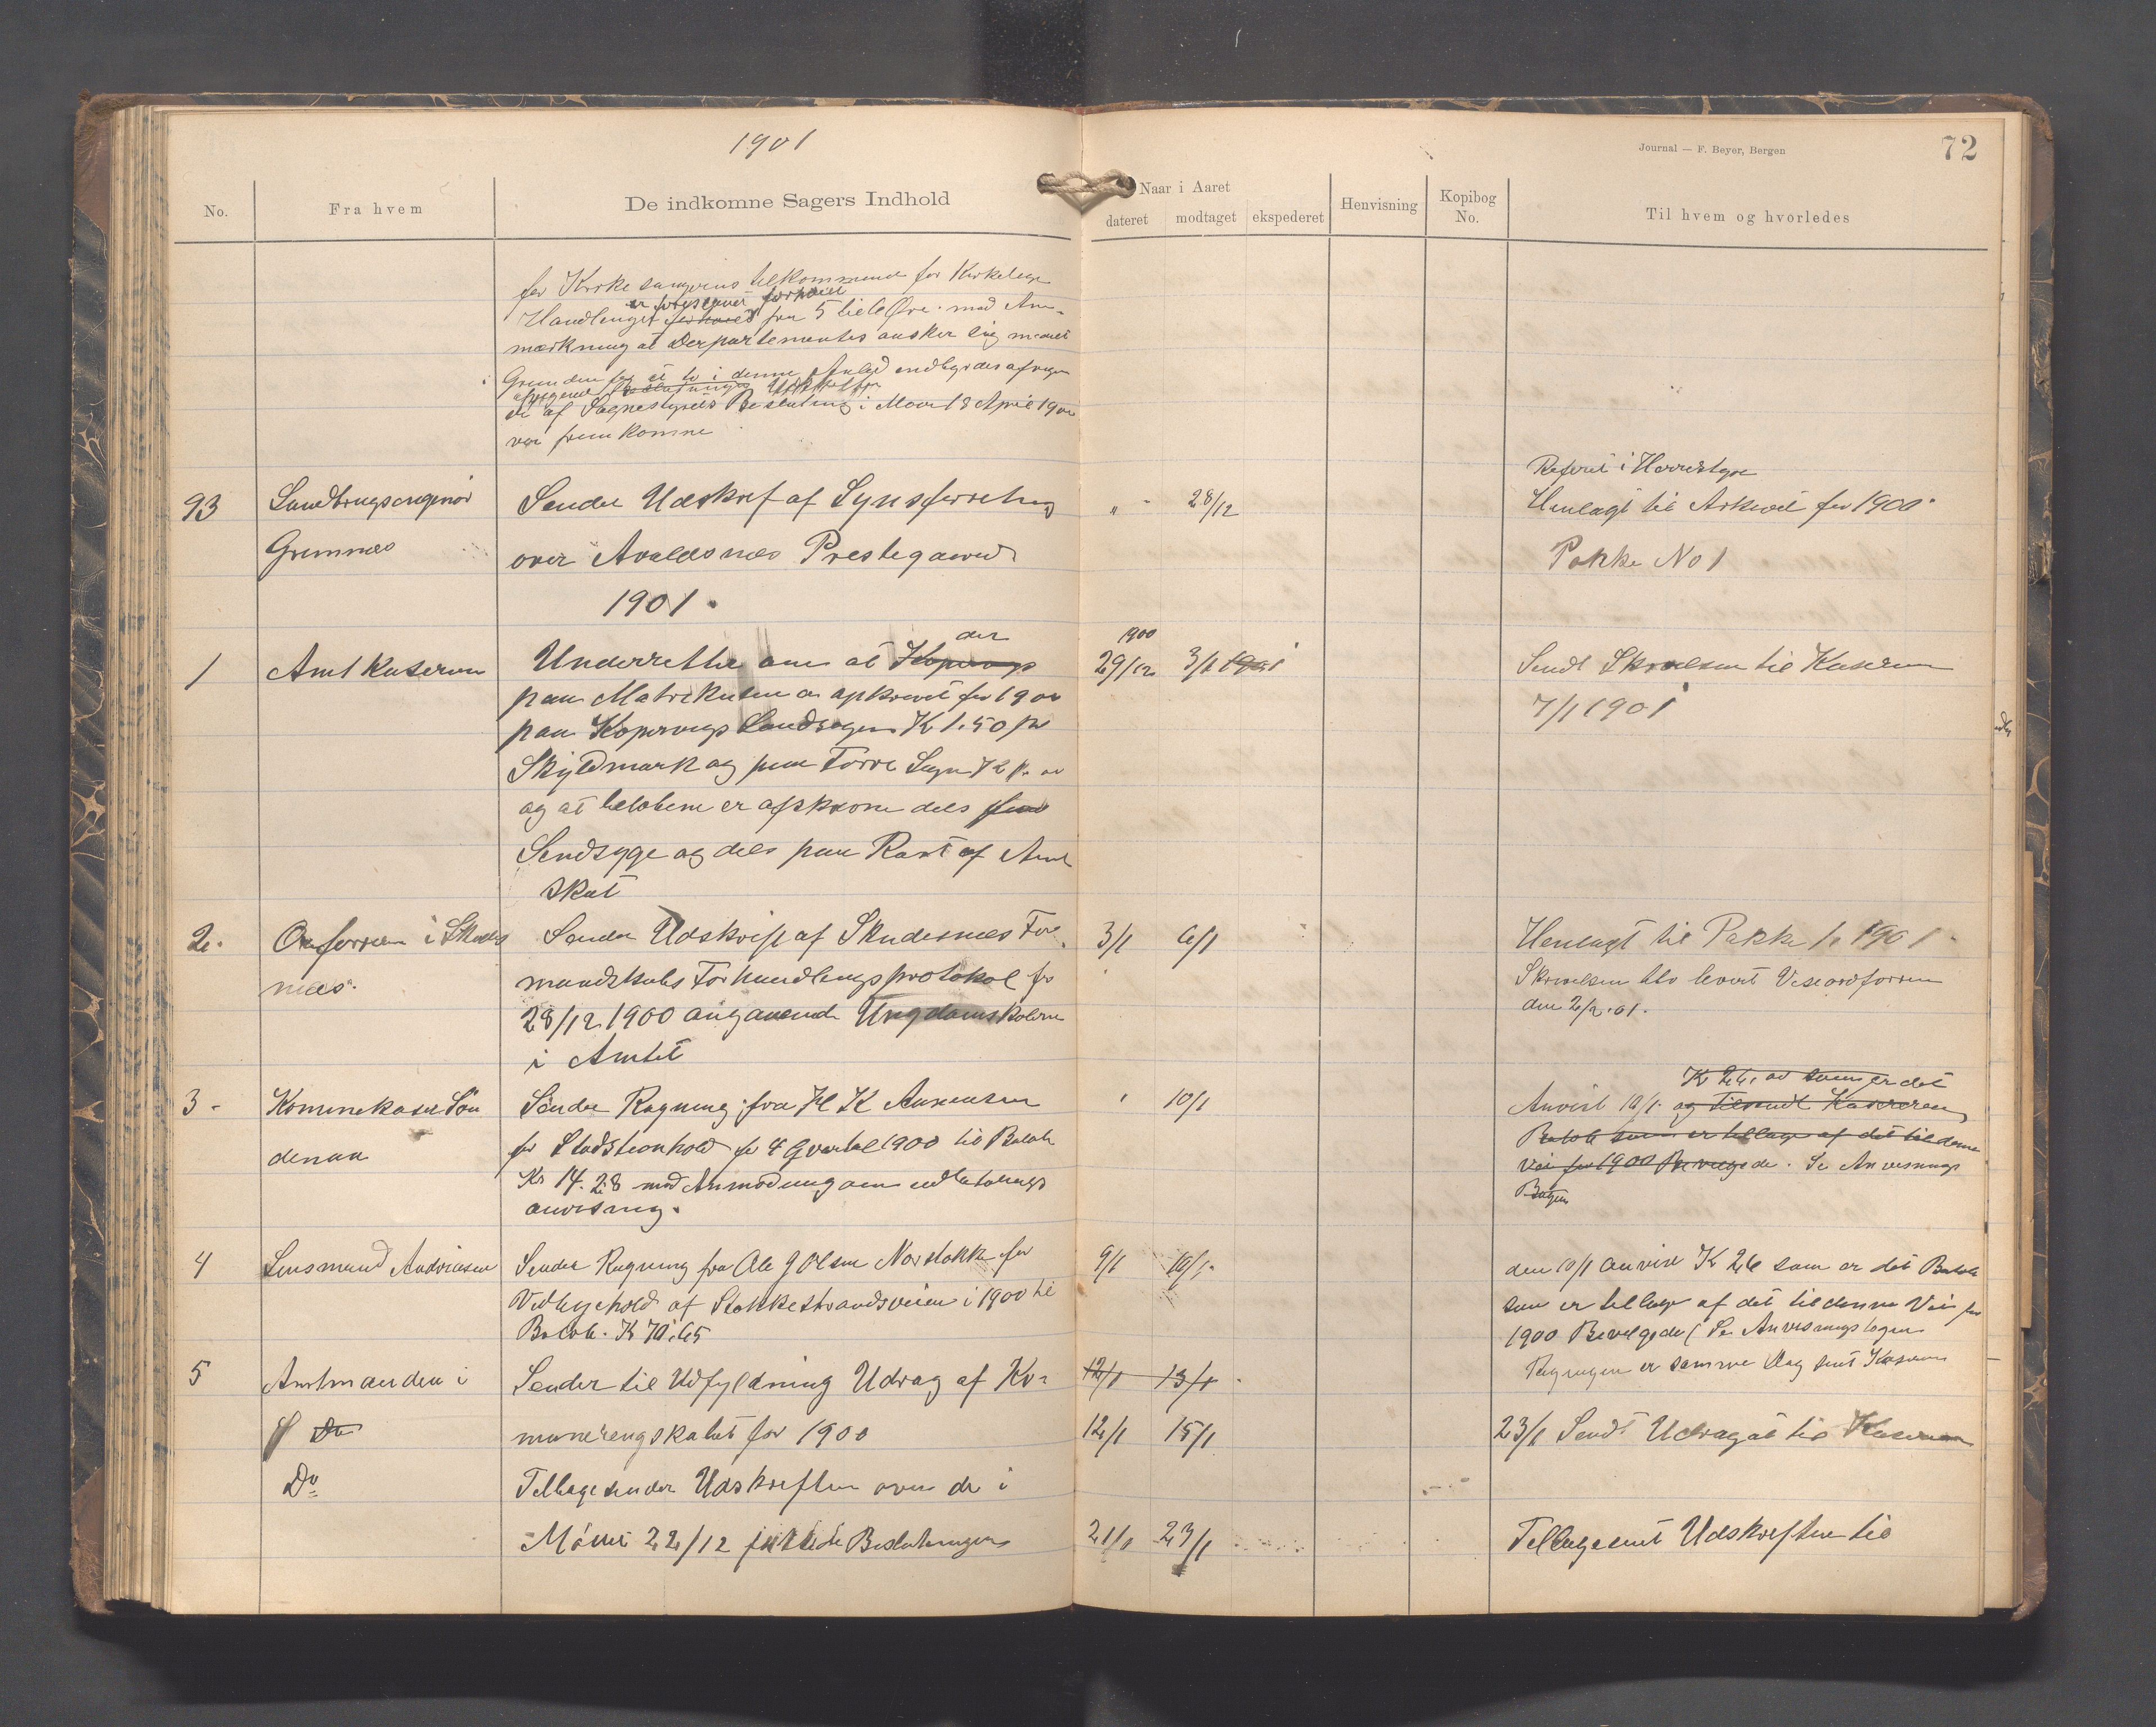 1901
Journal — F. Beyer, Bergen
72
No.
Fra hvem
De indkomne Sagers Indhold
Naar i Aaret
dateret
modtaget
ekspederet
Henvisning
Kopibog
No.
Til hvem og hvorledes
for Kirkesangerens tilkommende for Kirkelige
er foreslaaet forhøiet
Handlinger forhøied fra 5 til 10 Øre med An-
mærkning at Departementet ønsker sig meddelt
Grunden for at to i denne
af Sognestyrets Beslutning i Møde 18 April 1900
var fremkomne
93
Landbrugsingeniør
Grimnes
Sender Udskrift af Synsforretning
over Avaldsnes Prestegaard
" - 28/12
Referert i Herredstyre
Henlagt til Arkivet for 1900.
Pakke No 1
1901.
1
Amtkasseren
Underretter om at Kopervigs der
paa Matrikulen er opkrevet for 1900
paa Kopervigs Landsogn K 1.50 pr
Skyldmark og paa Torve Sogn K
og at beløbene er afskrevne dels paa
Sindsyge og dels paa Rest af Amt
skat
1900
29/12 3/1 1901
Sendt Skrivelsen til Kasseren
7/1 1901
2.
Ordføreren i Skudes
nes.
Sender Udskrift af Skudesnes For-
mandskabs Forhandlingsprotokol for
28/12 1900 angaaende Ungdomsskolerne
i Amtet
3/1 6/1
Henlagt til Pakke 1. 1901.
Skrivelsen blev levert Viseordføreren
den 2/2.01.
3 -
Kommekasser Søn
denaa
Sender Regning fra H K Aanensen
for Skydsstionhold for 4 Qvartal 1900 til Beløb
Kr 14.28 med Anmodning om udbetalings
anvisning.
" 10/1
K 26. som er det
Anvist 10/1. og tilsendt Kassereren
Beløb som er tillags af det til denne
Vei for 1900 Bevilgede. Se Anvisnings
Bogen
4
Lensmand Andreasen
Sender Regning fra Ole J Olsen Norstokke for
Vedligehold af Stokkestrandsveien i 1900 til
Beløb. K 70.65
9/1 10/1.
den 10/1 anvist K 26 som er det Beløb
som er tillags af det til denne Vei for
1900 Bevilgede (Se Anvisningsbogen
Regningen er samme Dag sent Kasseren
5
Amtmanden i
Sender til Udfyldning Udrag af Ko-
12/1 13/1.
Do
muneregnskabet for 1900
12/1 15/1
23/1 Sendt Udraget til Kasseren
Do
Tilbagesender Udskriften over de i
Møde 22/12 fattede Beslutninger
21/1 23/1
Tilbagesent Udskriften til